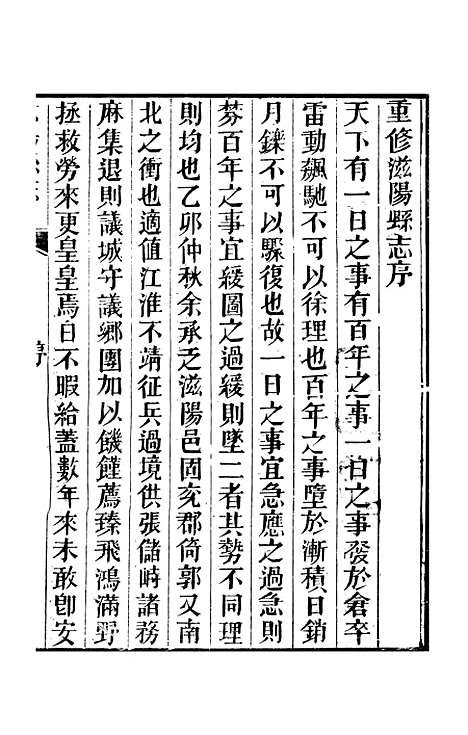 重修滋陽縣志序
天下有一日之事有百年之事一日之事發於倉卒
雷動飆馳不可以徐理也百年之事墮於漸積日銷
月鑠不可以驟復也故一日之事宜急應之過急則
棼百年之事宜緩圖之過緩則墜二者其勢不同理
則均也乙卯仲秋余承乏滋陽邑固兗郡倚郭又南
北之衝也適值江淮不靖征兵過境供張儲峙諸務
麻集退則議城守議鄉團加以饑饉薦臻飛鴻滿野
拯救勞來更皇皇焉日不暇給蓋數年來未敢卽安
序